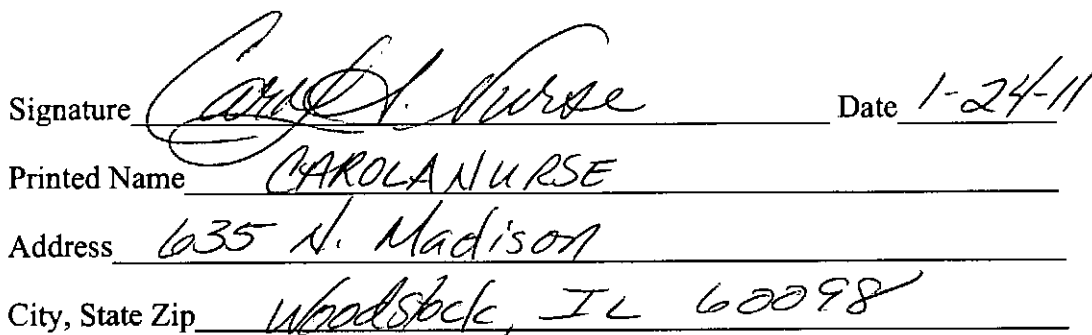 Signature Carol A. Nurse Date 1-24-11
Printed Name CAROLA NURSE
Address 635 N. Madison
City, State Zip Woodstock, IL 60098